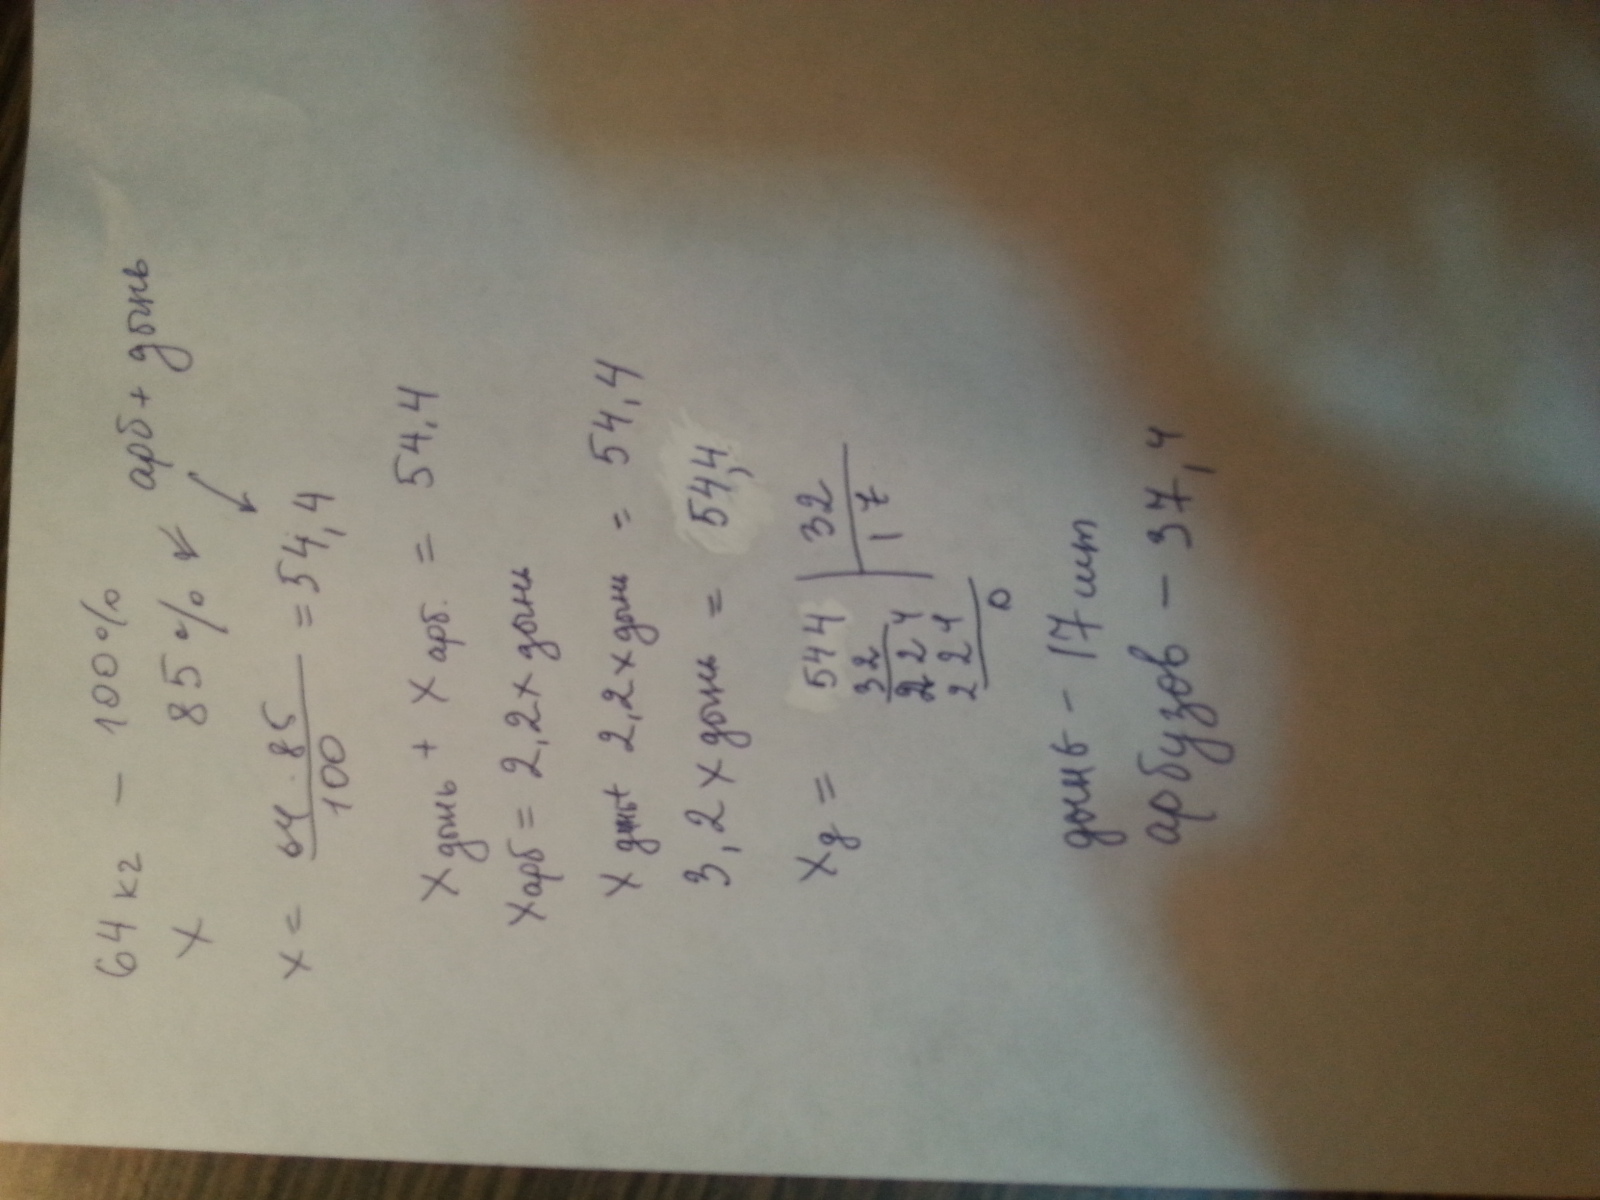 64 кг – 100%
X 85% арб + дынь
X = 64 · 85 / 100 = 54,4
X дынь + X арб. = 54,4
Xарб = 2,2 X дыни
X дынь + 2,2 X дыни = 54,4
3,2 X дынь = 54,4
Xд = 544 | 32
32 17
224
224
0
дынь – 17 шт
арбузов – 37,4